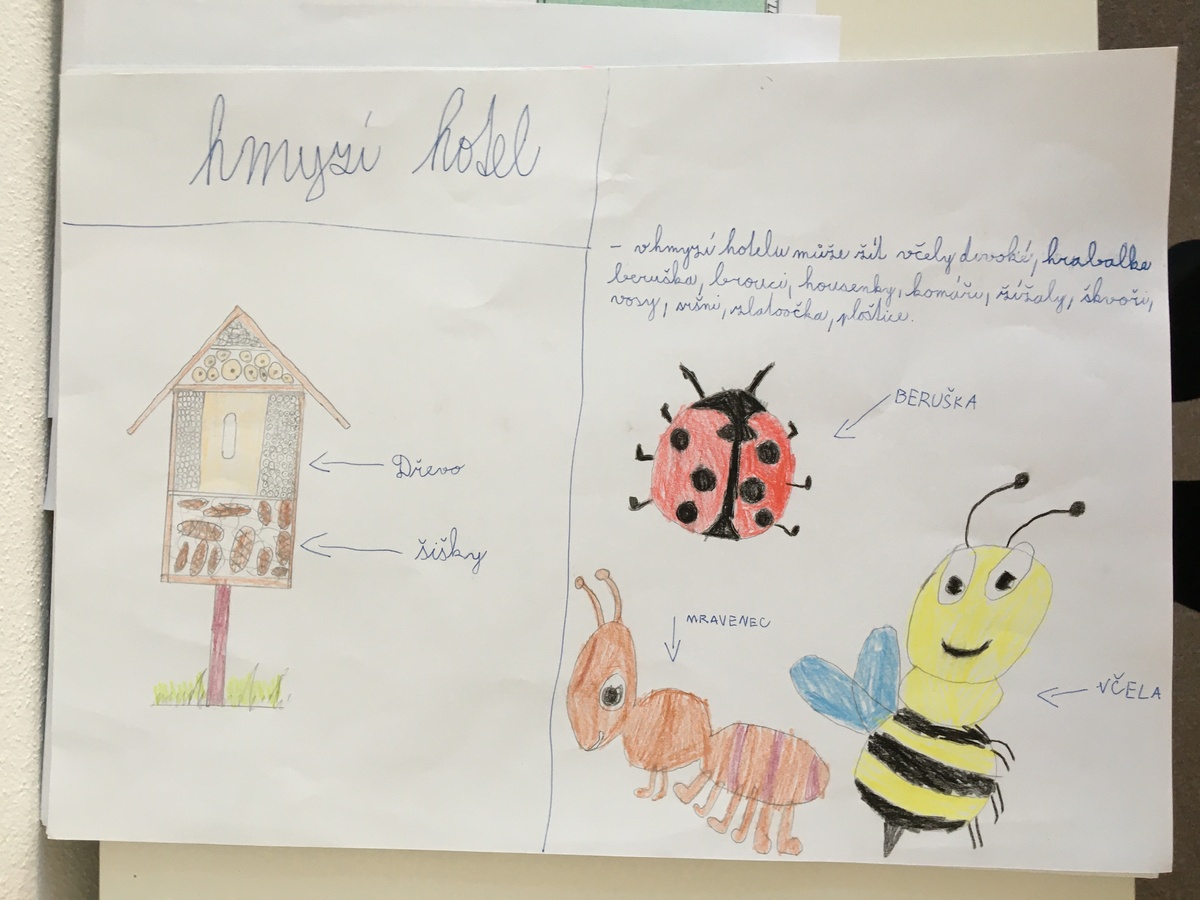 hmyzí hotel
- v hmyzí hotelu může žít včely divoké, hrabalke
beruška, brouci, housenky, komáři, žížaly, škvoři,
vosy, sršni, zlatoočka, ploštice.
Dřevo
šišky
BERUŠKA
MRAVENEC
VČELA